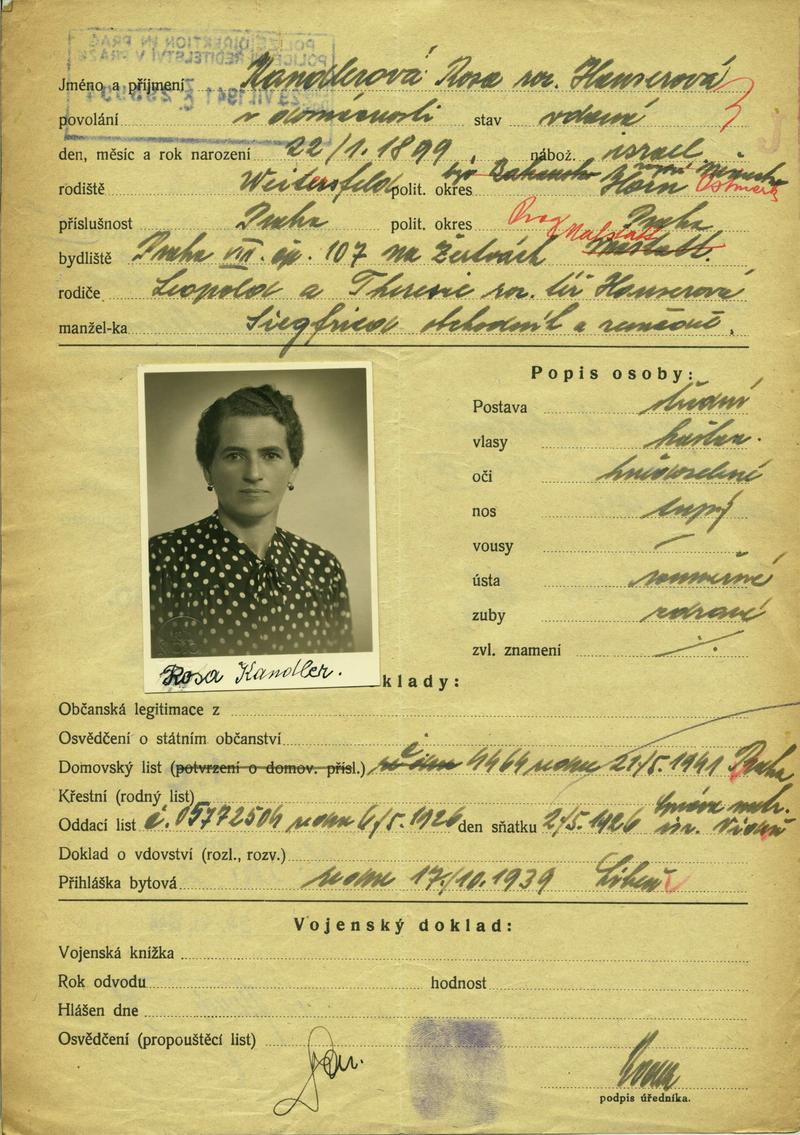 Jméno a příjmení Kandlerová Rosa roz. Hauserová
povolání v domácnosti stav vdaná
den, měsíc a rok narození 22/1. 1899 nábož. israel
rodiště Weitersfeld polit. okres Horn Ostmark
příslušnost Praha polit. okres Praha
bydliště Praha VIII. čp. 107 na Žertvách
rodiče Leopold a Theresie roz. též Hauserová
manžel-ka Siegfried obchodník a
Popis osoby:
Postava střední
vlasy kaštan.
oči hnědozelené
nos tupý
vousy –
ústa souměrné
zuby zdravé
zvl. znamení
Rosa Kandler.
klady:
Občanská legitimace z
Osvědčení o státním občanství
Domovský list (potvrzení o domov. přísl.) č 4464 ze dne 21/5. 1941 Praha
Křestní (rodný list)
Oddací list č. 05772504 ze dne 6/5. 1926 den sňatku 2/5. 1926
Doklad o vdovství (rozl., rozv.)
Přihláška bytová ze dne 17./10. 1939 Libeň
Vojenský doklad:
Vojenská knížka
Rok odvodu hodnost
Hlášen dne
Osvědčení (propouštěcí list)
podpis úředníka.